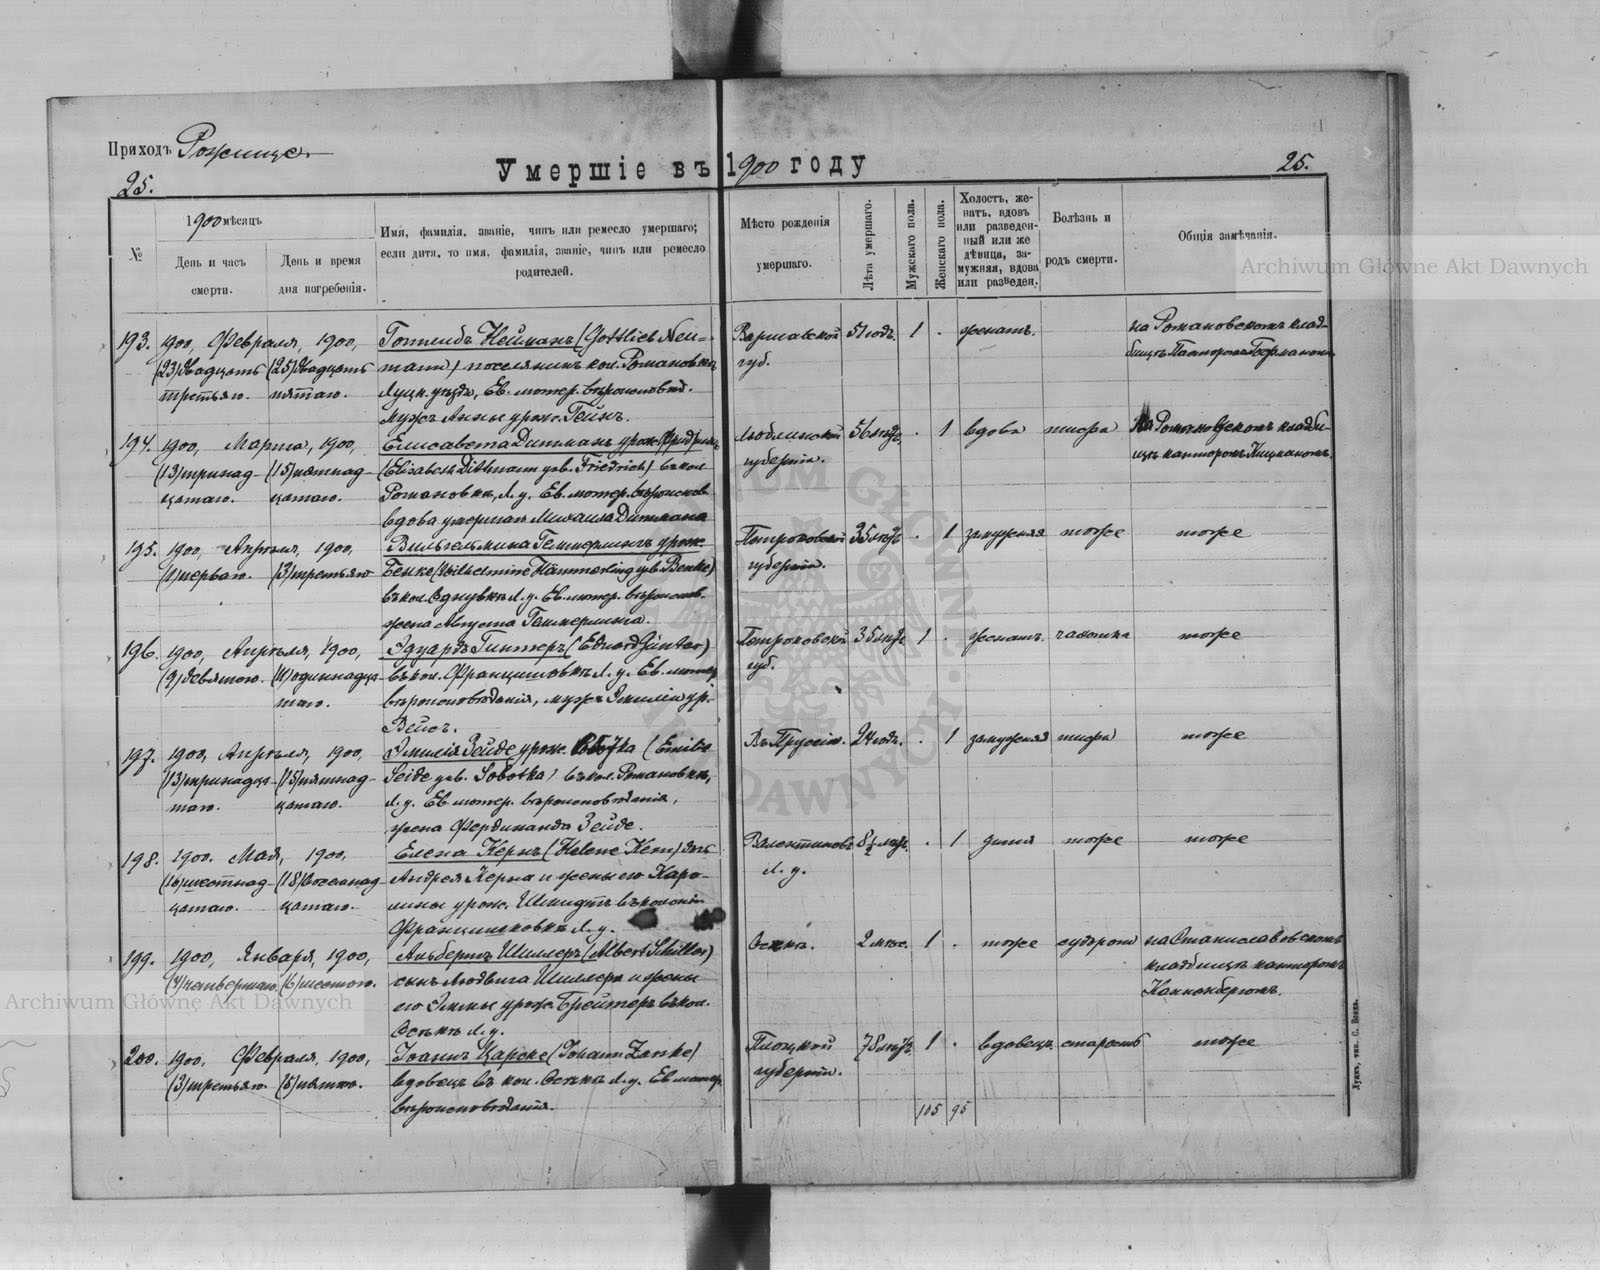 Приходъ Рожище.
25.
Умершіе въ 1900 году
25.
№
1900 мѣсяцъ
День и часъ смерти.
День и время дня погребенія.
Имя, фамилія, званіе, чинъ или ремесло умершаго;
если дитя, то имя, фамилія, званіе, чинъ или ремесло
родителей.
Мѣсто рожденія
умершаго.
Лѣта умершаго.
Мужскаго пола.
Женскаго пола.
Холостъ, же-
натъ, вдовъ
или разведен-
ный или же
дѣвица, за-
мужняя, вдова
или разведен.
Болѣзнь и
родъ смерти.
Общія замѣчанія.
193. 1900, Февраля, 1900, Готлибъ Нейманъ (Gottlieb Neu- Варшавской 51 годъ. 1 . женатъ. на Романовскомъ клад-
(23) двадцать (25) двадцать mann) поселянинъ кол. Романовка, губ. бищѣ Пасторомъ
третьяго. пятаго. Луцк. уѣзда, Ев. лютер. вѣроисповѣд.
мужъ Анны урож. Гейнъ.
194. 1900, Марта, 1900, Елисавета Дитманъ урож. Фридрихъ Люблинской 56 лѣтъ . 1 вдова тифа На Романовскомъ кладби-
(13) тринад- (15) пятнад- (Elisabeth Dittmann geb. Friedrich) въ кол. губерніи. щѣ канторомъ
цатаго. цатаго. Романовкѣ, Л. у. Ев. лютер. вѣроисповѣд.
вдова умершаго Михаила Дитмана
195. 1900, Апрѣля, 1900, Вильгельмина Геммерлингъ урож. Петроковской 35 лѣтъ . 1 замужняя тоже тоже
(1) перваго. (3) третьяго Бенке (Wilhelmine Hämmerling geb. Benke) губерніи.
въ кол. Л. у. Ев. лютер. вѣроиспов.
жена Августа Геммерлинга.
196. 1900, Апрѣля, 1900, Эдуардъ Гинтеръ (Eduard Günter) Петроковской 35 лѣтъ 1 . женатъ. чахотка тоже
(9) девятого. (11) одиннадца- въ кол. Францишовкѣ Л. у. Ев. лютер. губ.
таго. вѣроисповѣданія, мужъ Эмиліи ур.
Вейсъ.
197. 1900, Апрѣля, 1900, Эмилія Зейде урож. Соботка (Emilie Въ Пруссіи. 24 годъ. . 1 замужняя тифа тоже
(13) тринадца- (15) пятнад- Seide geb. Sobotka) въ кол. Романовкѣ,
таго. цатаго. Л. у. Ев. лютер. вѣроисповѣданія,
жена Фердинанда Зейде.
198. 1900. Мая, 1900, Елена Кернъ (Helene Kern) дочь Валентиновъ 8½ лѣтъ. . 1 дитя тоже тоже
(16) шестнад- (18) восемнад- Андрея Керна и жены его Каро- Л. у.
цатаго. цатаго. лины урож. Шмидтъ въ колоніи
Францишковкѣ Л. у.
199. 1900, Января, 1900, Альбертъ Шиллеръ (Albert Schiller) Осѣкъ. 2 мѣс. 1 . тоже судороги на Станиславовскомъ
(4) четвертаго. (6) шестого. сынъ Людвига Шиллера и жены кладбищѣ канторомъ
его Эммы урож. Брейтеръ въ кол. Канненбергомъ.
Осѣкъ Л. у.
200. 1900, Февраля, 1900, Іоаннъ Царске (Johann Zarske) Плоцкой 78 лѣтъ 1 . вдовецъ. старость тоже
(3) третьяго. (5) пятого. вдовецъ въ кол. Осѣкъ Л. у. Ев. лютер. губерніи.
вѣроисповѣданія.
105 95
Луцкъ, тип. С. Бокка.
Archiwum Główne Akt Dawnych
Archiwum Główne Akt Dawnych